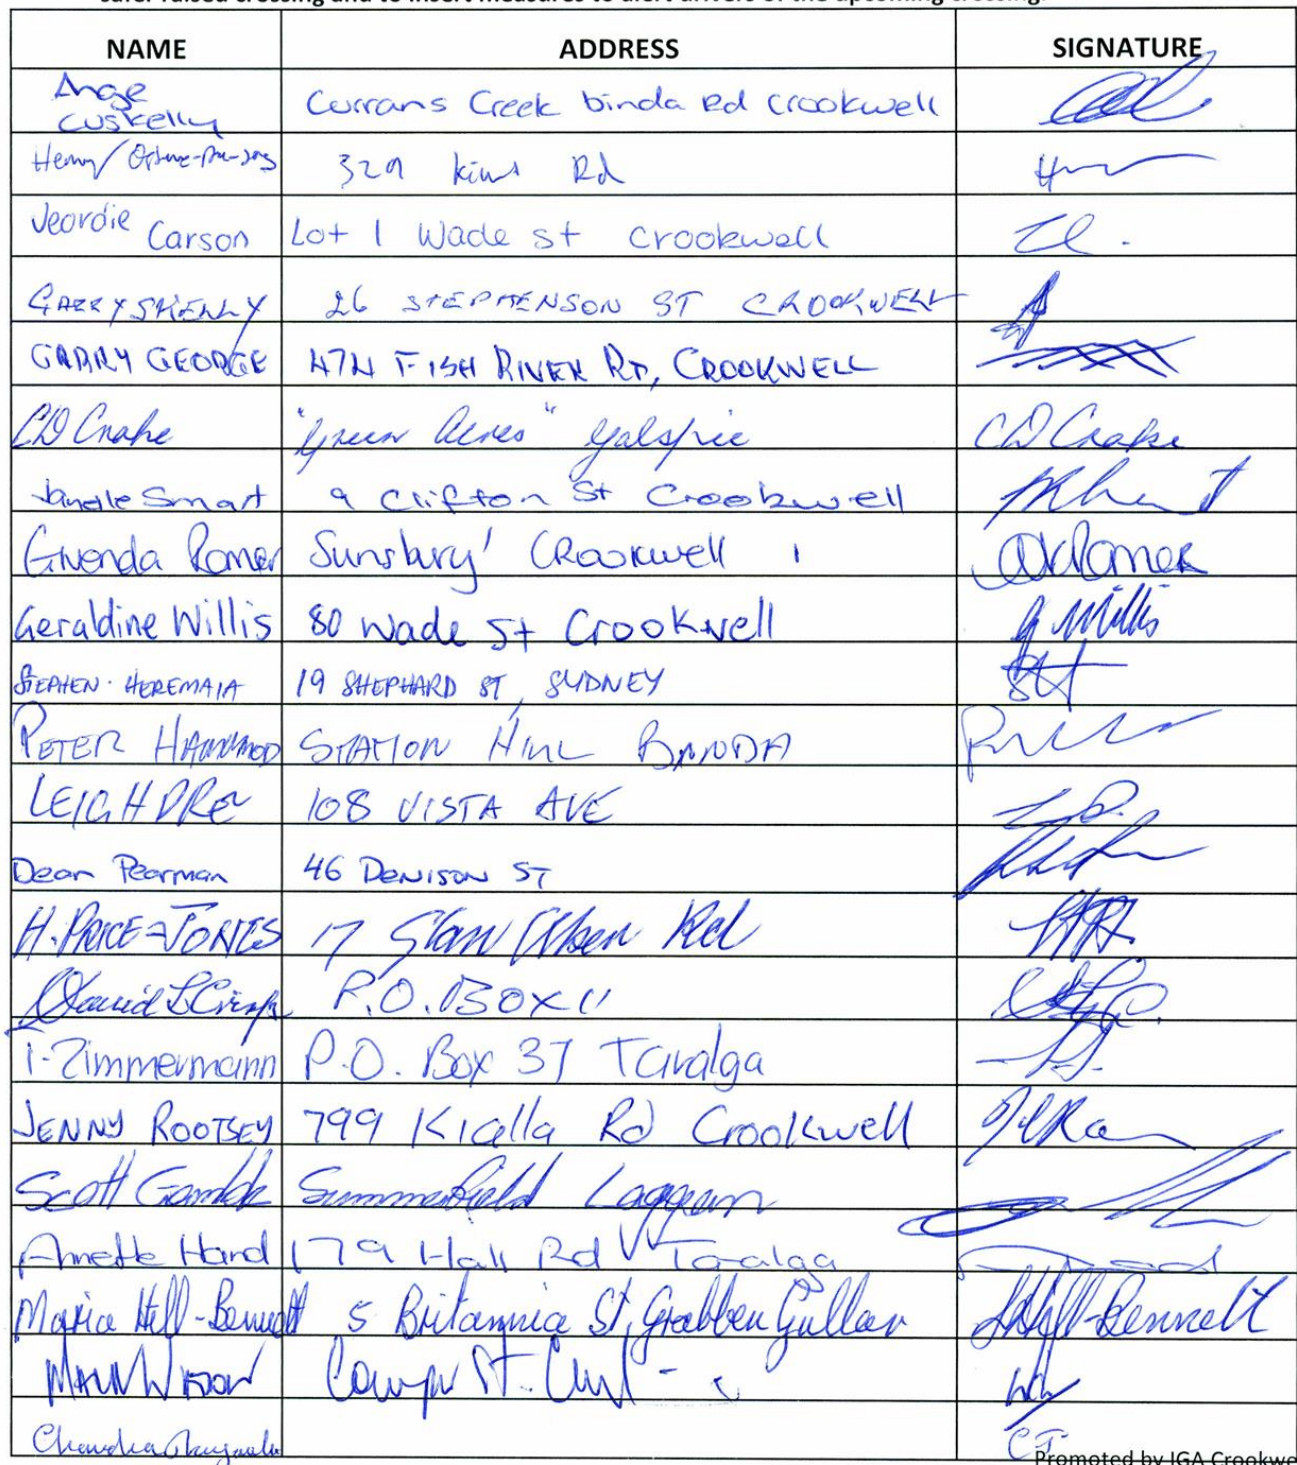 safer raised crossing and to insert measures to alert drivers of the upcoming crossing.
NAME ADDRESS SIGNATURE
Ange Cuskelly Currans Creek binda Rd Crookwell
Henry 329 Rd
Jeordie Carson Lot 1 Wade st Crookwell
GARRY SKELLY 26 STEPHENSON ST CROOKWELL
GARRY GEORGE 474 FISH RIVER RD, CROOKWELL
CD Crake "Green Acres" CD Crake
Smart 9 Clifton St Crookwell
Gwenda Romer Sunsbury' CRookwell Romer
Geraldine Willis 80 Wade St Crookwell G Willis
STEPHEN HEREMAIA 19 SHEPHARD ST, SYDNEY
PETER STATION HILL BINDA
LEIGH 108 VISTA AVE
Dean Pearman 46 DENISON ST
H. PRICE-JONES 17 Rd
David L Crisp P.O. BOX 11
T. Zimmermann P.O. Box 37 Taralga
JENNY ROOTSEY 799 Kialla Rd Crookwell
Scott Summerfield Laggan
Annette Hand 179 Hall Rd Taralga
Maria Hill-Bennett 5 Britannia St, Grabben Gullen Hill-Bennett
St.
Chandra CJ
Promoted by IGA Crookwe